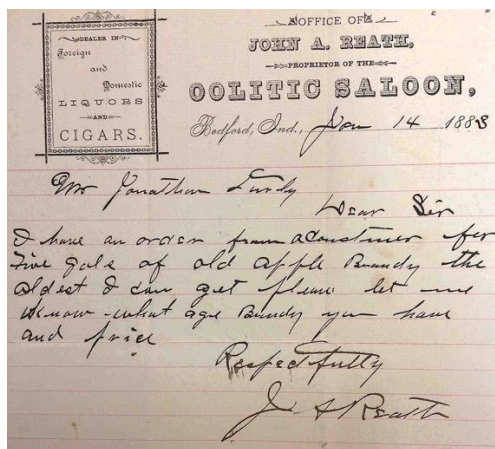 DEALER IN
Foreign
and
Domestic
LIQUORS
AND
CIGARS.
OFFICE OF
JOHN A. REATH,
PROPRIETOR OF THE
OOLITIC SALOON,
Bedford, Ind., Jan 14 1888
Mr Jonathan
Dear Sir
I have an order from a Coustmer for
Five gals of old apple Brandy the
oldest I can get please let me
know what age Brandy you have
and price
Respectfully
J A Reath